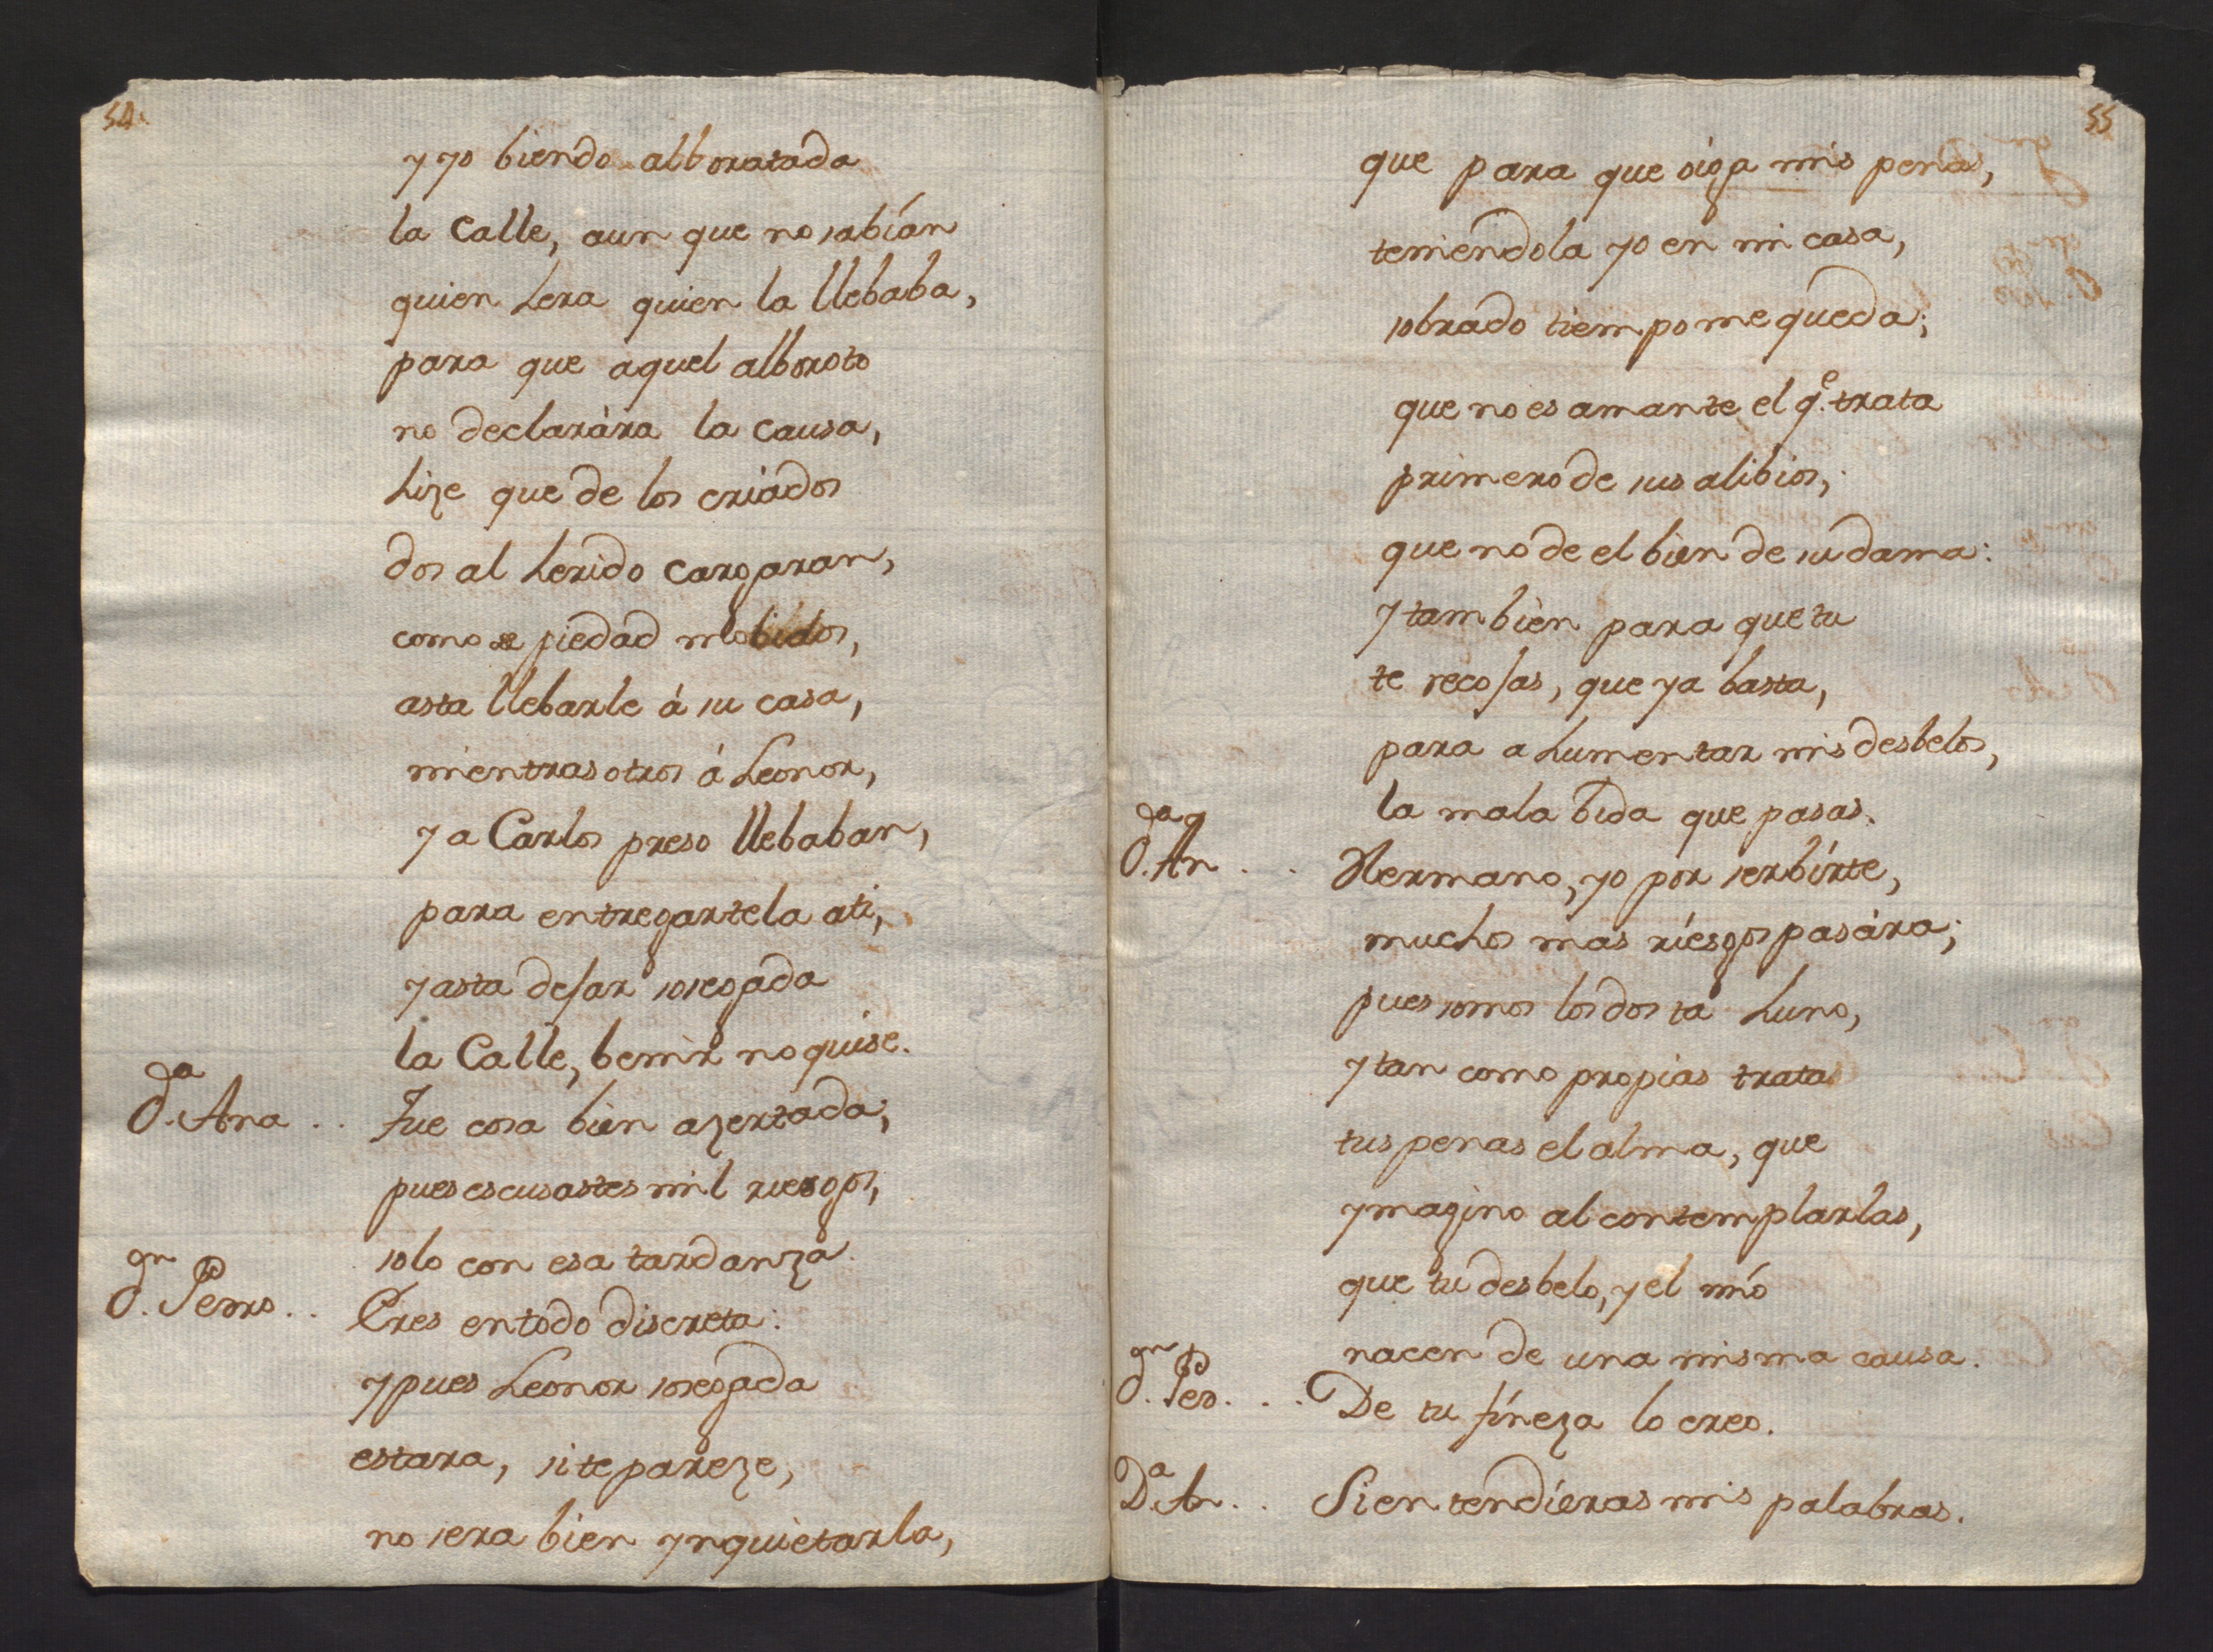 54.
y yo biendo alborotada
la Calle, aun que no sabían
quien hera quien la llebaba,
para que aquel alboroto
no declarára la causa,
hize que de los criados
dos al herido cargaran,
como de piedad mobidos,
asta llebarle á su casa,
mientras otros á Leonor,
y a Carlos preso llebaban,
para entregartela ati,
y asta dejar sosegada
la Calle, benir no quise.
d.ª Ana .. Fue cosa bien azertada;
pues escusastes mil riesgos,
solo con esa tardanza.
d.n Pedro .. Eres en todo discreta:
y pues Leonor sosegada
estara, si te pareze,
no sera bien ynquietarla,
55
que para que oiga mis penas,
teniendola yo en mi casa,
sobrado tiempo me queda;
que no es amante el q.e trata
primero de sus alibios,
que no de el bien de su dama:
y tambien para que tu
te recojas, que ya basta,
para ahumentar mis desbelos,
la mala bida que pasas.
d.ª An .. Hermano, yo por serbirte,
muchos mas riesgos pasára;
pues somos los dos ta huno,
y tan como propias trata
tus penas el alma, que
ymagino al contemplarlas,
que tu desbelo, y el mío
nacen de una misma causa.
d.n Ped. .. De tu fineza lo creo.
D.ª An .. Si entendieras mis palabras.